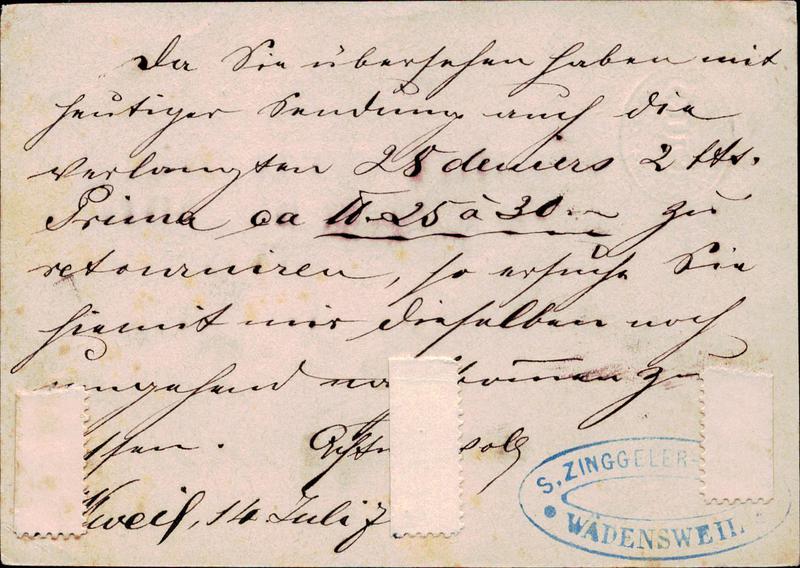 Da Sie übersehen haben mit
heutiger Sendung auch die
verlangten 28 deniers 2 tts.
Prima ca 25 à 30 zu
retourniren, so ersuche Sie
hiemit mir dieselben noch
umgehend zu
14 Juli 7
S. ZINGGELER
WÄDENSWEIL